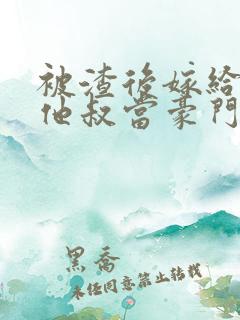 被渣後嫁給
他叔當豪門
黑喬
未經同意禁止轉載